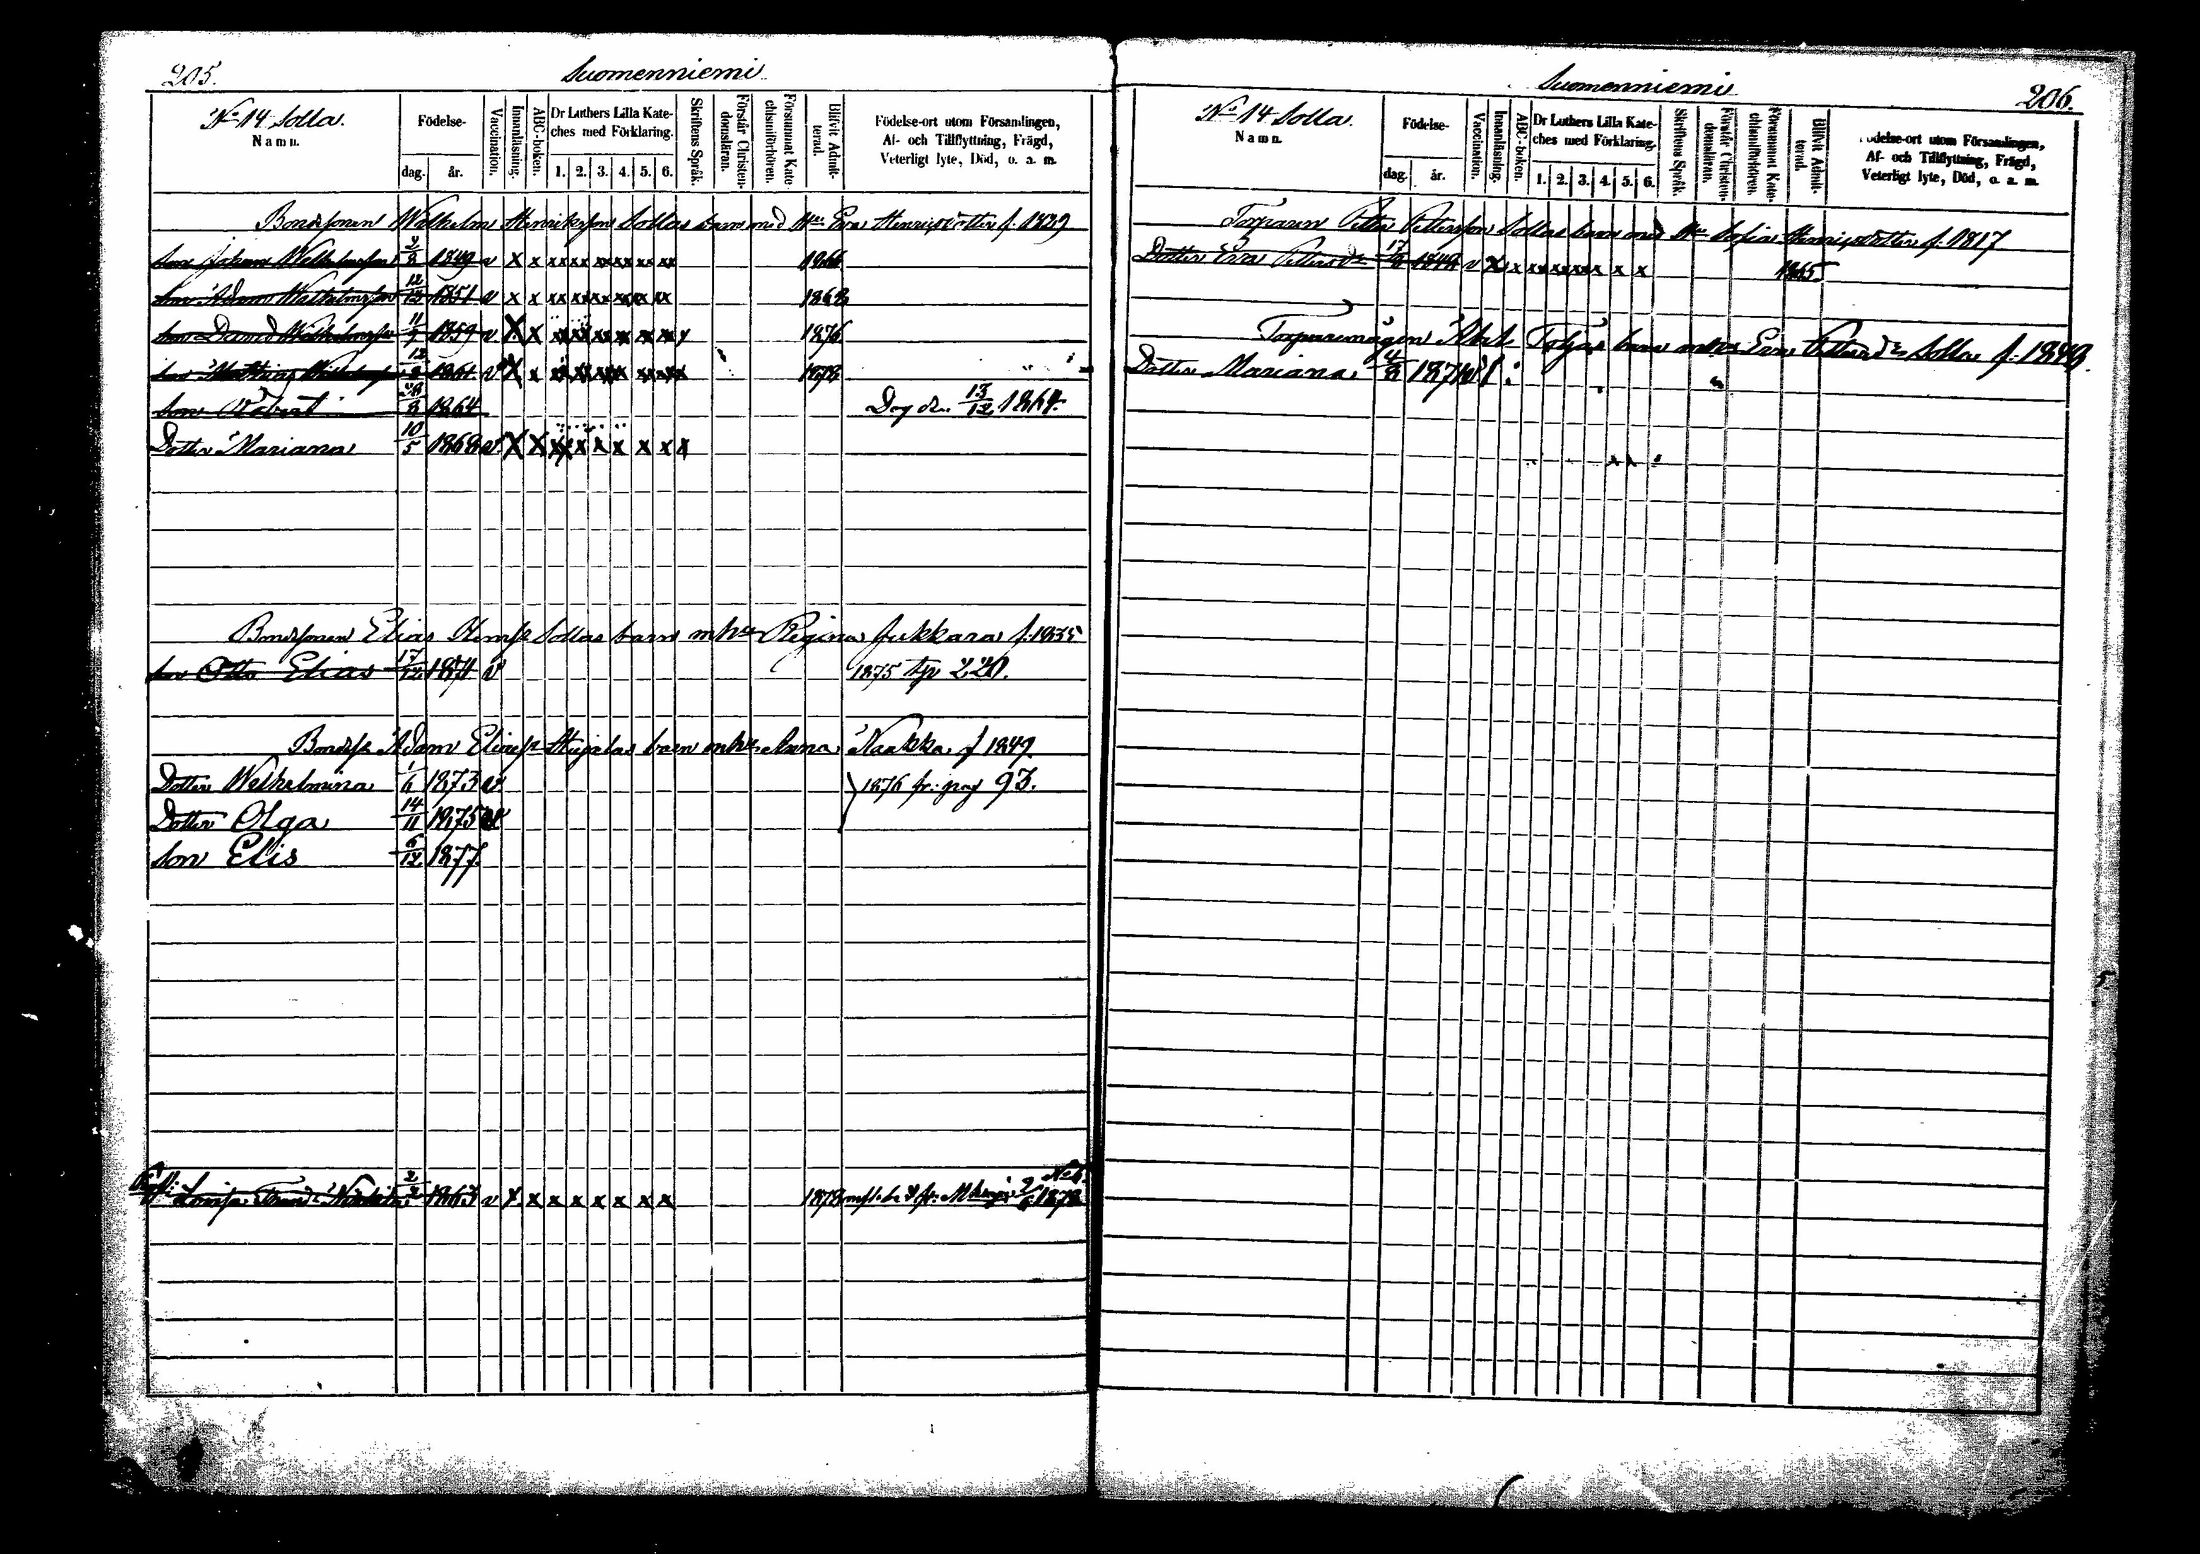 205.
Suomenniemi
No 14 Solla.
Namn.
Födelse-
dag. år.
Vaccination.
Innanläsning.
ABC-boken.
Dr Luthers Lilla Kate-
ches med Förklaring.
1. 2. 3. 4. 5. 6.
Skriftens Språk.
Förstår Christen-
domsläran.
Försummat Kate
chismiförhören.
Blifvit Admit-
terad.
Födelse-ort utom Församlingen,
Af- och Tillflyttning, Frägd,
Veterligt lyte, Död, o. a. m.
Bondesonen Wilhelm Henriksson Sollas barn med Hu Eva Henriksdotter f. 1829
Son Johan Wilhelmsson 1849 v x x xx xx xx xx xx xx 1866
Son Adam Wilhelmsson 12 1851 v x x xx xx xx xx xx xx 1868
Son David Wilhelmsson 11 1859 v x x xx xx xx xx xx xx 1876
Son Mathias 12 1861 v x x xx xx xx xx xx xx 1878
Son Robert 8 1864 Dog den 13/12 1864.
Dotter Mariana 10/5 1868 v x x x x x x x x x
Bondesonen Elias Hensp Sollas barn m hu Regina Jukkara f. 1835
Son Otto Elias 17/12 1871 v 1875 tp 220.
Bondesp Adam Eliesp barn m hu Anna Naakka f 1849
Dotter Wilhelmina 1/6 1873 v 1876 fr: pag 93.
Dotter Olga 14/11 1875 v
Son Elis 6/12 1877.
Lovisa 2 1863 v x x x x x x x x 1878 fr: 1878
206.
Suomenniemi
No 14 Solla.
Namn.
Födelse-
dag. år.
Vaccination.
Innanläsning.
ABC-boken.
Dr Luthers Lilla Kate-
ches med Förklaring.
1. 2. 3. 4. 5. 6.
Skriftens Språk.
Förstår Christen-
domsläran.
Försummat Kate-
chismiförhören.
Blifvit Admit-
terad.
Födelse-ort utom Församlingen,
Af- och Tillflyttning, Frägd,
Veterligt lyte, Död, o. a. m.
Torparen Petter Pettersson Sollas barn med Hu Sofia Henriksdotter f. 1817
Dotter Eva Pettersdr 17 1848 v x x xx xx xx x x x 1865.
Torparemågen barn m hu Eva Pettersdr Solla f. 1848.
Dotter Mariana 4/8 1871